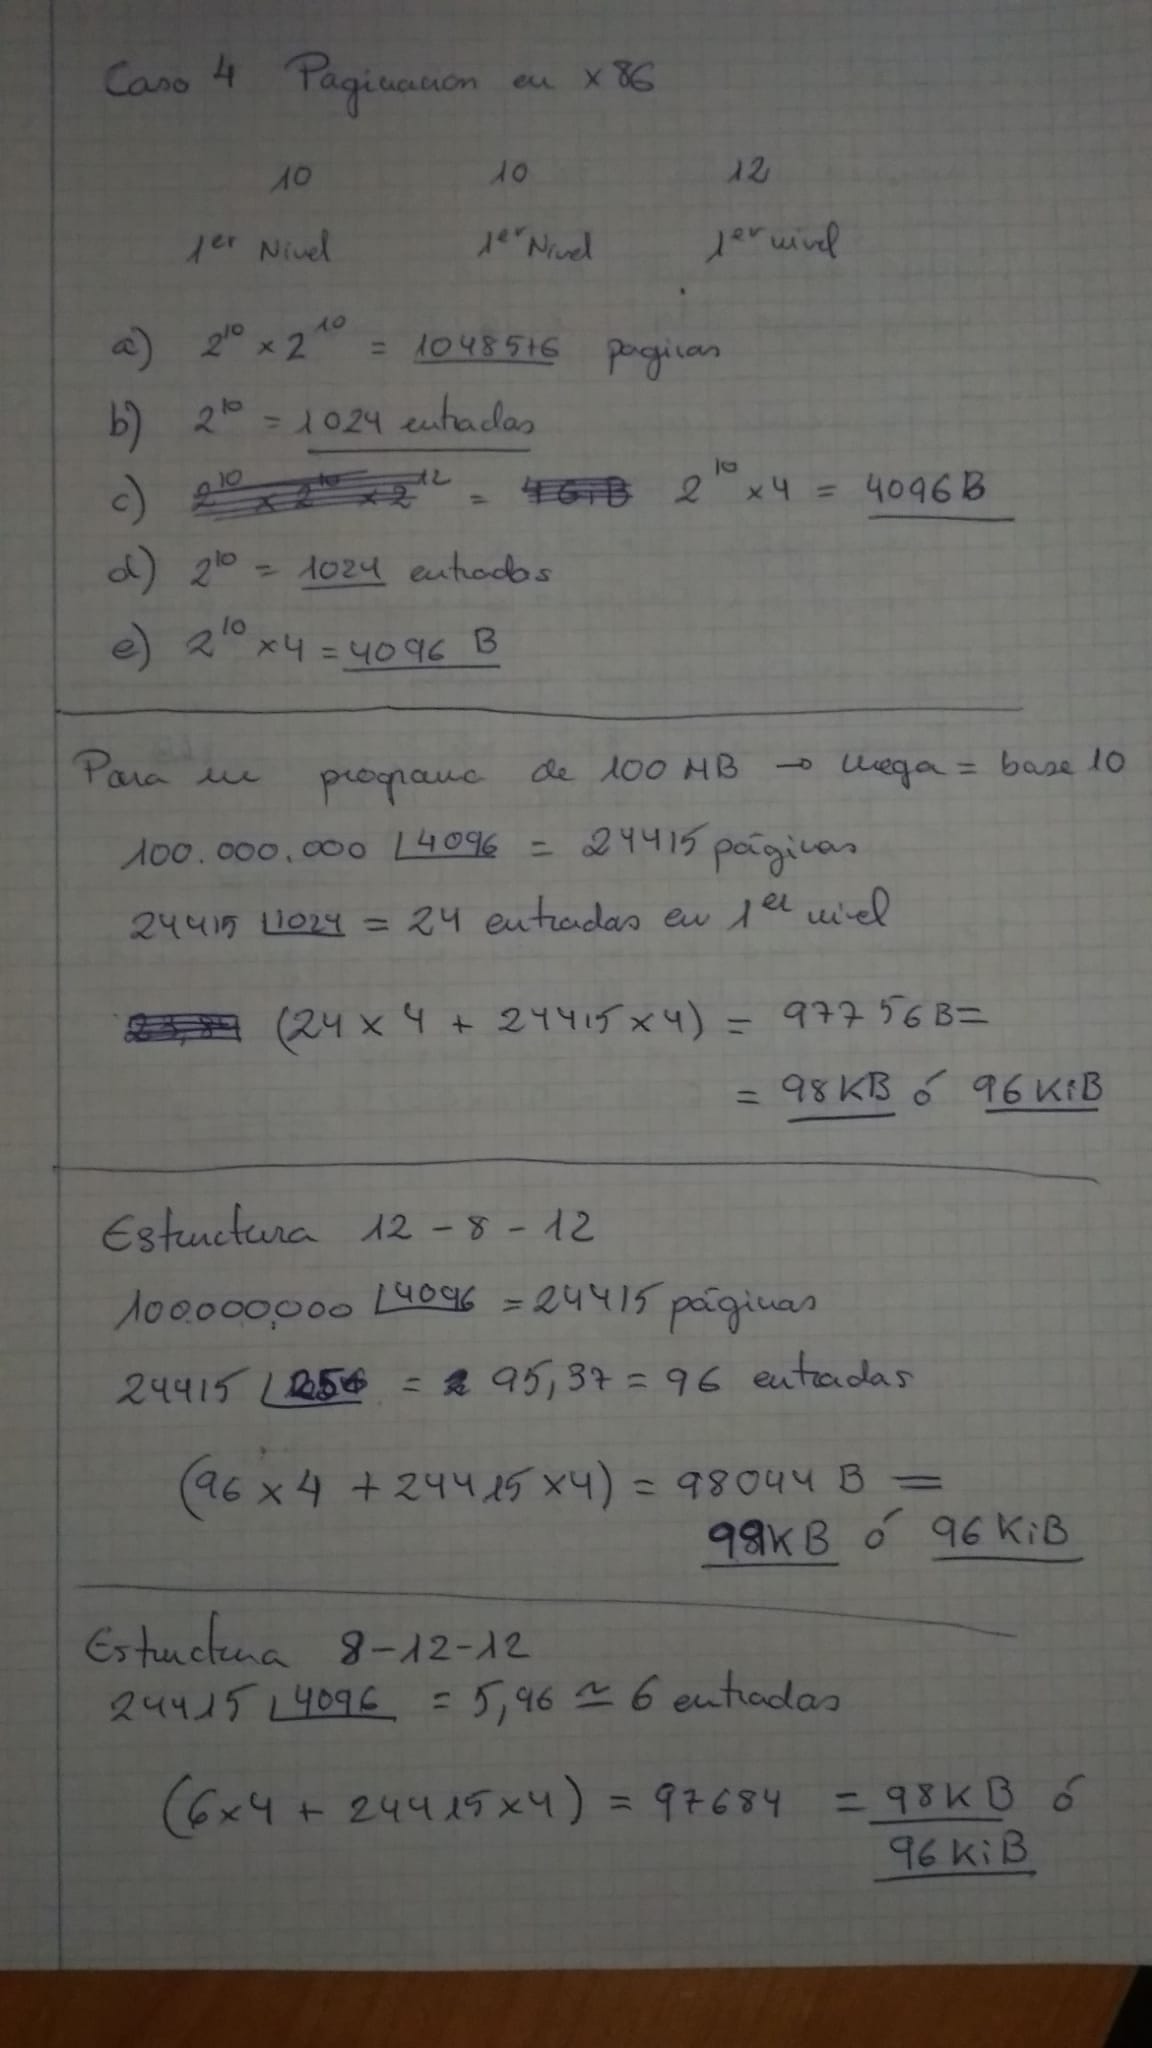 Caso 4 Paginacion en x86
10 10 12
1er Nivel 1er Nivel 1er nivel
a) 2^10 x 2^10 = 1048576 paginas
b) 2^10 = 1024 entradas
c) 2^10 x 2^10 x 2^12 = 4GiB 2^10 x 4 = 4096 B
d) 2^10 = 1024 entradas
e) 2^10 x 4 = 4096 B
Para un programa de 100 MB → Mega = base 10
100.000.000 ⌊4096 = 24415 páginas
24415 ⌊1024 = 24 entradas en 1er nivel
23,84 (24 x 4 + 24415 x 4) = 97756 B =
= 98 KB ó 96 KiB
Estructura 12 - 8 - 12
100.000.000 ⌊4096 = 24415 páginas
24415 ⌊256 = 95,37 = 96 entradas
(96 x 4 + 24415 x 4) = 98044 B =
98 KB ó 96 KiB
Estructura 8-12-12
24415 ⌊4096 = 5,96 ≃ 6 entradas
(6x4 + 24415 x 4) = 97684 = 98 KB ó
96 KiB